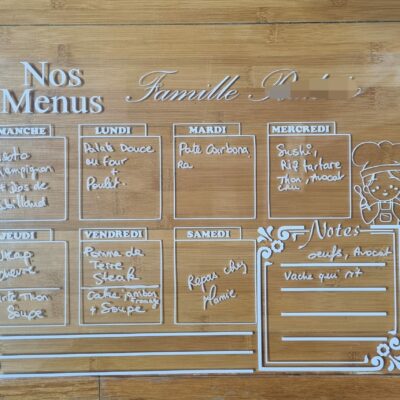 Nos
Menus
Famille
MANCHE
champignon
+ dos de
LUNDI
Patate Douce
au four
+
Poulet
MARDI
Pate Carbona
Ra
MERCREDI
Sushi
Riz tartare
Thon, Avocat
JEUDI
Wrap
chèvre
Thon
Soupe
VENDREDI
Pomme de
Terre
Steak
jambon
fromage
+ Soupe
SAMEDI
Repas chez
Mamie
Notes
oeufs, Avocat
Vache qui rit